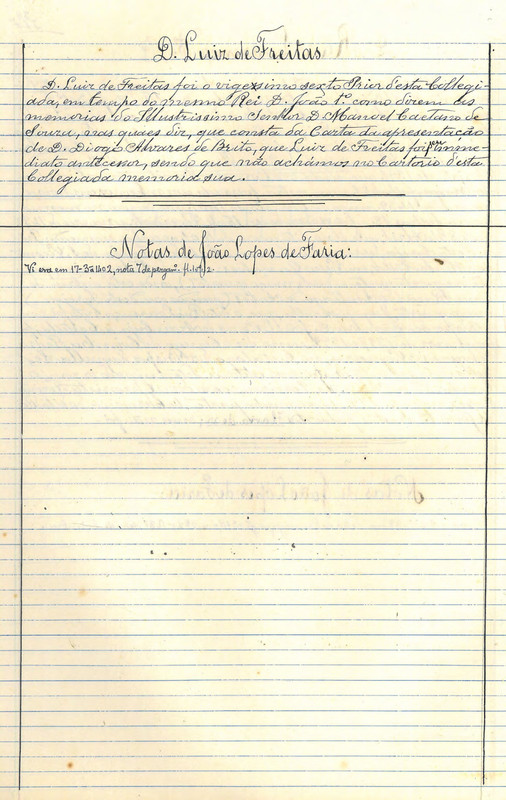 D. Luiz de Freitas
D. Luiz de Freitas foi o vigexsimo sexto Prior d'esta Collegi-
ada, em tempo do mesmo Rei D. João 1º. como dizem as
memorias do Illustrissimo Senhor D. Manoel Caetano de
Souza, nas quaes diz, que consta da Carta da apresentação
de D. Diogo Alvares de Brito, que Luiz de Freitas foi seu imme-
diato antecessor, sendo que não achámos no Cartorio d'esta
Collegiada memoria sua.
Notas de João Lopes de Faria:
Vi era em 17-3º-1402, nota 7 de pergamº. fl.